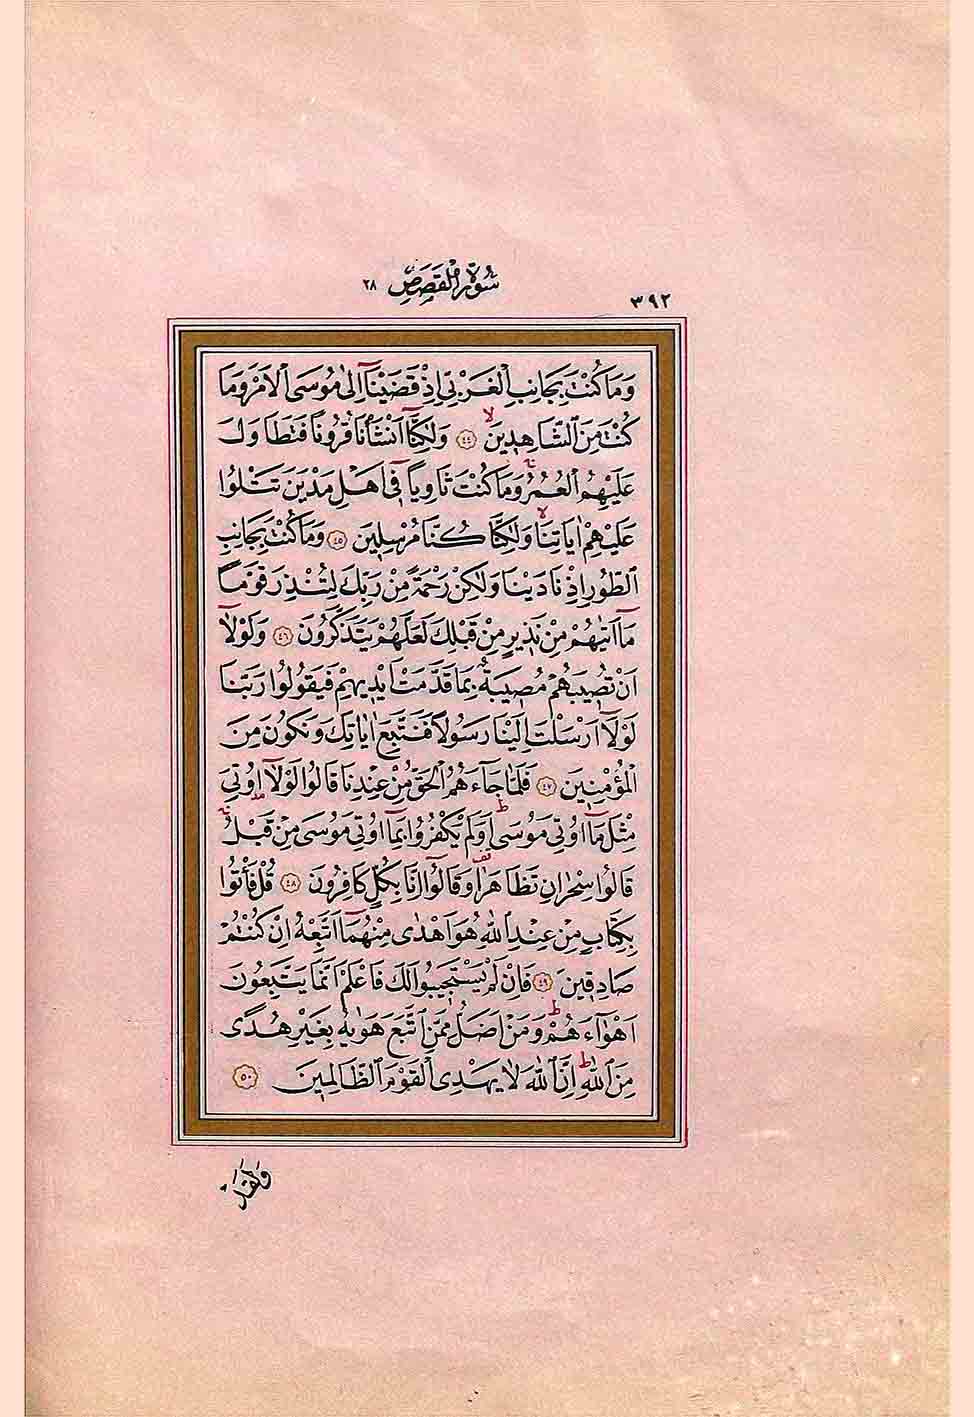 سُورَةُ الْقَصَصِ ٢٨
٣٩٢
وَمَا كُنْتَ بِجَانِبِ الْغَرْبِىِّ اِذْ قَضَيْنَٓا اِلٰى مُوسَى الْاَمْرَ وَمَا
كُنْتَ مِنَ الشَّاهِدٖينَ ﴿٤٤﴾ وَلٰكِنَّٓا اَنْشَأْنَا قُرُونًا فَتَطَاوَلَ
عَلَيْهِمُ الْعُمُرُ وَمَا كُنْتَ ثَاوِيًا فٖٓى اَهْلِ مَدْيَنَ تَتْلُوا
عَلَيْهِمْ اٰيَاتِنَا وَلٰكِنَّا كُنَّا مُرْسِلٖينَ ﴿٤٥﴾ وَمَا كُنْتَ بِجَانِبِ
الطُّورِ اِذْ نَادَيْنَا وَلٰكِنْ رَحْمَةً مِنْ رَبِّكَ لِتُنْذِرَ قَوْمًا
مَٓا اَتٰيهُمْ مِنْ نَذٖيرٍ مِنْ قَبْلِكَ لَعَلَّهُمْ يَتَذَكَّرُونَ ﴿٤٦﴾ وَلَوْلَٓا
اَنْ تُصٖيبَهُمْ مُصٖيبَةٌ بِمَا قَدَّمَتْ اَيْدٖيهِمْ فَيَقُولُوا رَبَّنَا
لَوْلَٓا اَرْسَلْتَ اِلَيْنَا رَسُولًا فَنَتَّبِعَ اٰيَاتِكَ وَنَكُونَ مِنَ
الْمُؤْمِنٖينَ ﴿٤٧﴾ فَلَمَّا جَٓاءَهُمُ الْحَقُّ مِنْ عِنْدِنَا قَالُوا لَوْلَٓا اُو۫تِىَ
مِثْلَ مَٓا اُو۫تِىَ مُوسٰى اَوَلَمْ يَكْفُرُوا بِمَٓا اُو۫تِىَ مُوسٰى مِنْ قَبْلُ
قَالُوا سِحْرَانِ تَظَاهَرَا وَقَالُٓوا اِنَّا بِكُلٍّ كَافِرُونَ ﴿٤٨﴾ قُلْ فَأْتُوا
بِكِتَابٍ مِنْ عِنْدِ اللّٰهِ هُوَ اَهْدٰى مِنْهُمَٓا اَتَّبِعْهُ اِنْ كُنْتُمْ
صَادِقٖينَ ﴿٤٩﴾ فَاِنْ لَمْ يَسْتَجٖيبُوا لَكَ فَاعْلَمْ اَنَّمَا يَتَّبِعُونَ
اَهْوَٓاءَهُمْ وَمَنْ اَضَلُّ مِمَّنِ اتَّبَعَ هَوٰيهُ بِغَيْرِ هُدًى
مِنَ اللّٰهِ اِنَّ اللّٰهَ لَا يَهْدِى الْقَوْمَ الظَّالِمٖينَ ﴿٥٠﴾
وَلَقَدْ